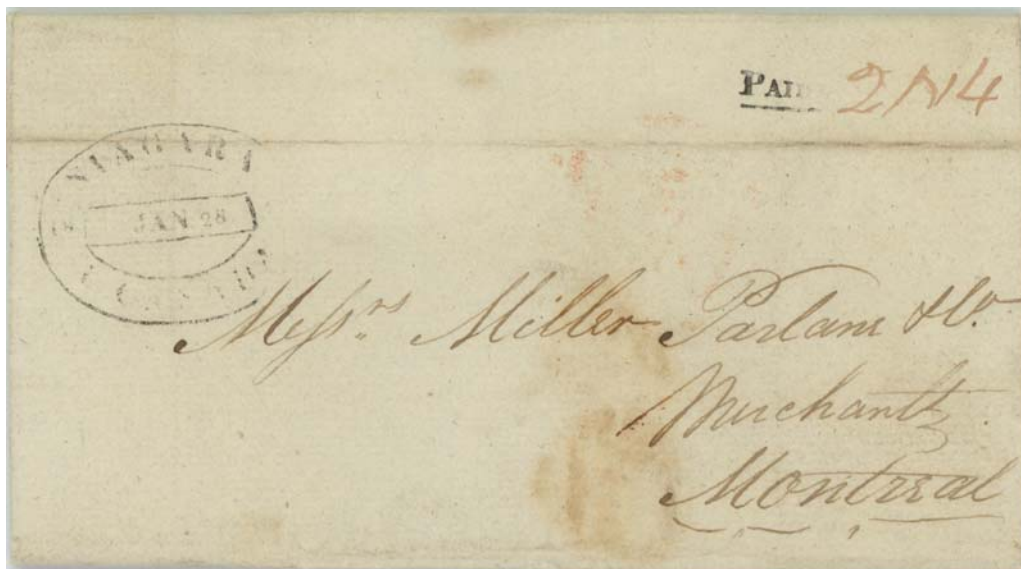 PAID 2/N4
NIAGARA
18 JAN 28
U. CANADA
Messrs. Miller Parlane & Co.
Merchants
Montreal